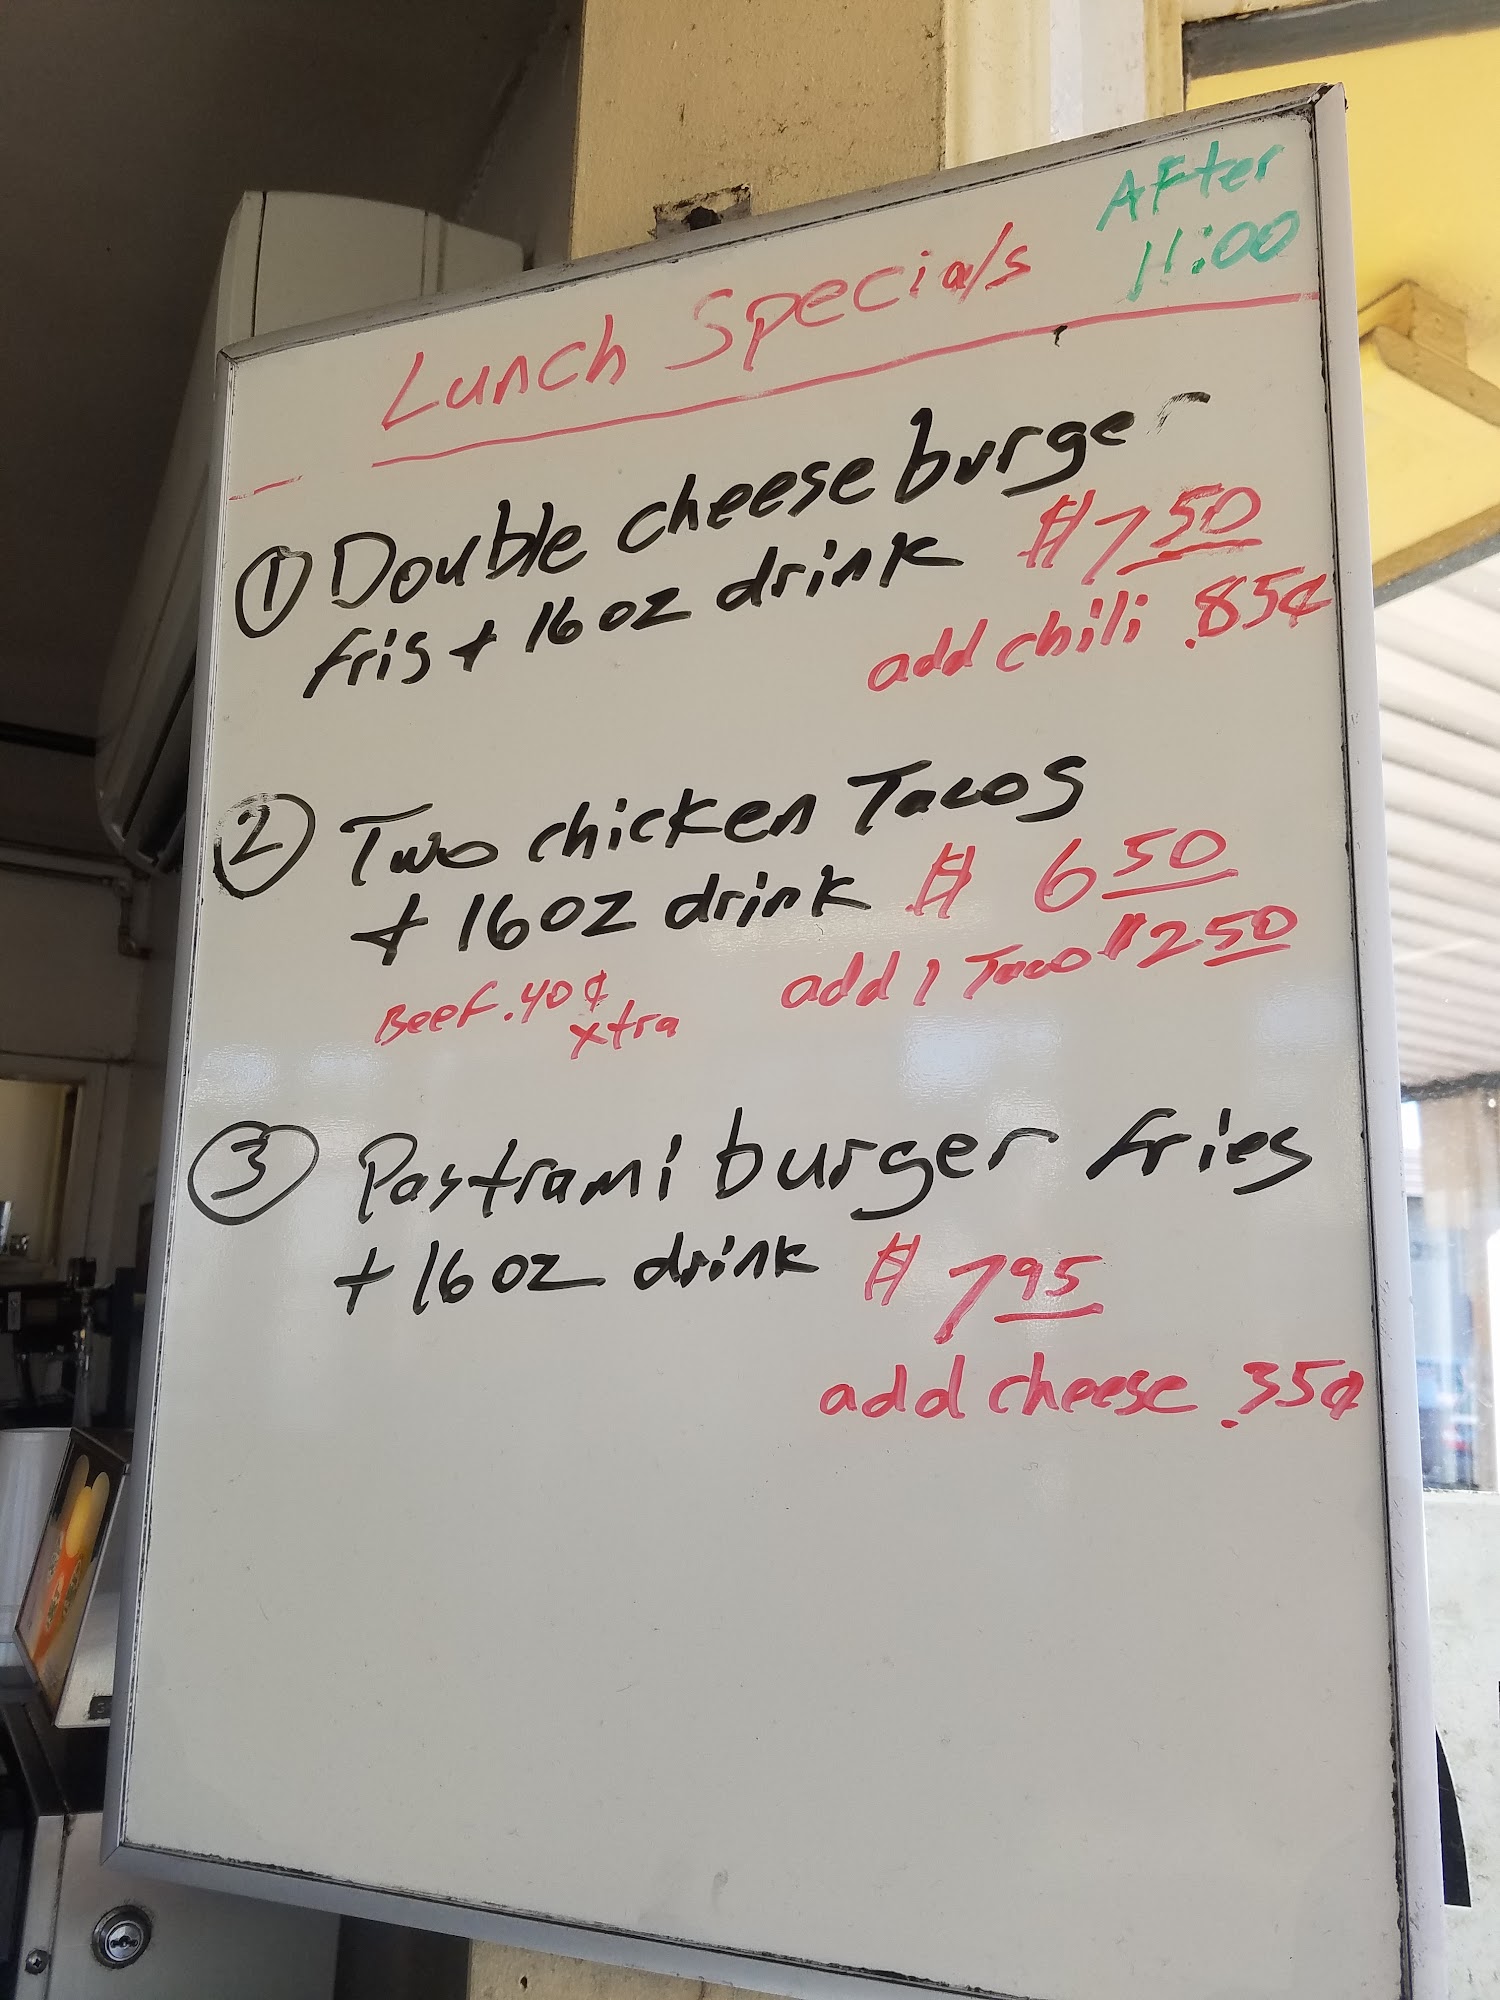 Lunch Specials
AFter
11:00
① Double cheese burger
fris + 16oz drink $7 50
add chili .85¢
② Two chicken Tacos
+ 16oz drink $ 6 50
add 1 Taco $2 50
Beef .40¢
xtra
③ Pastrami burger fries
+ 16oz drink $ 7 95
add cheese .35¢